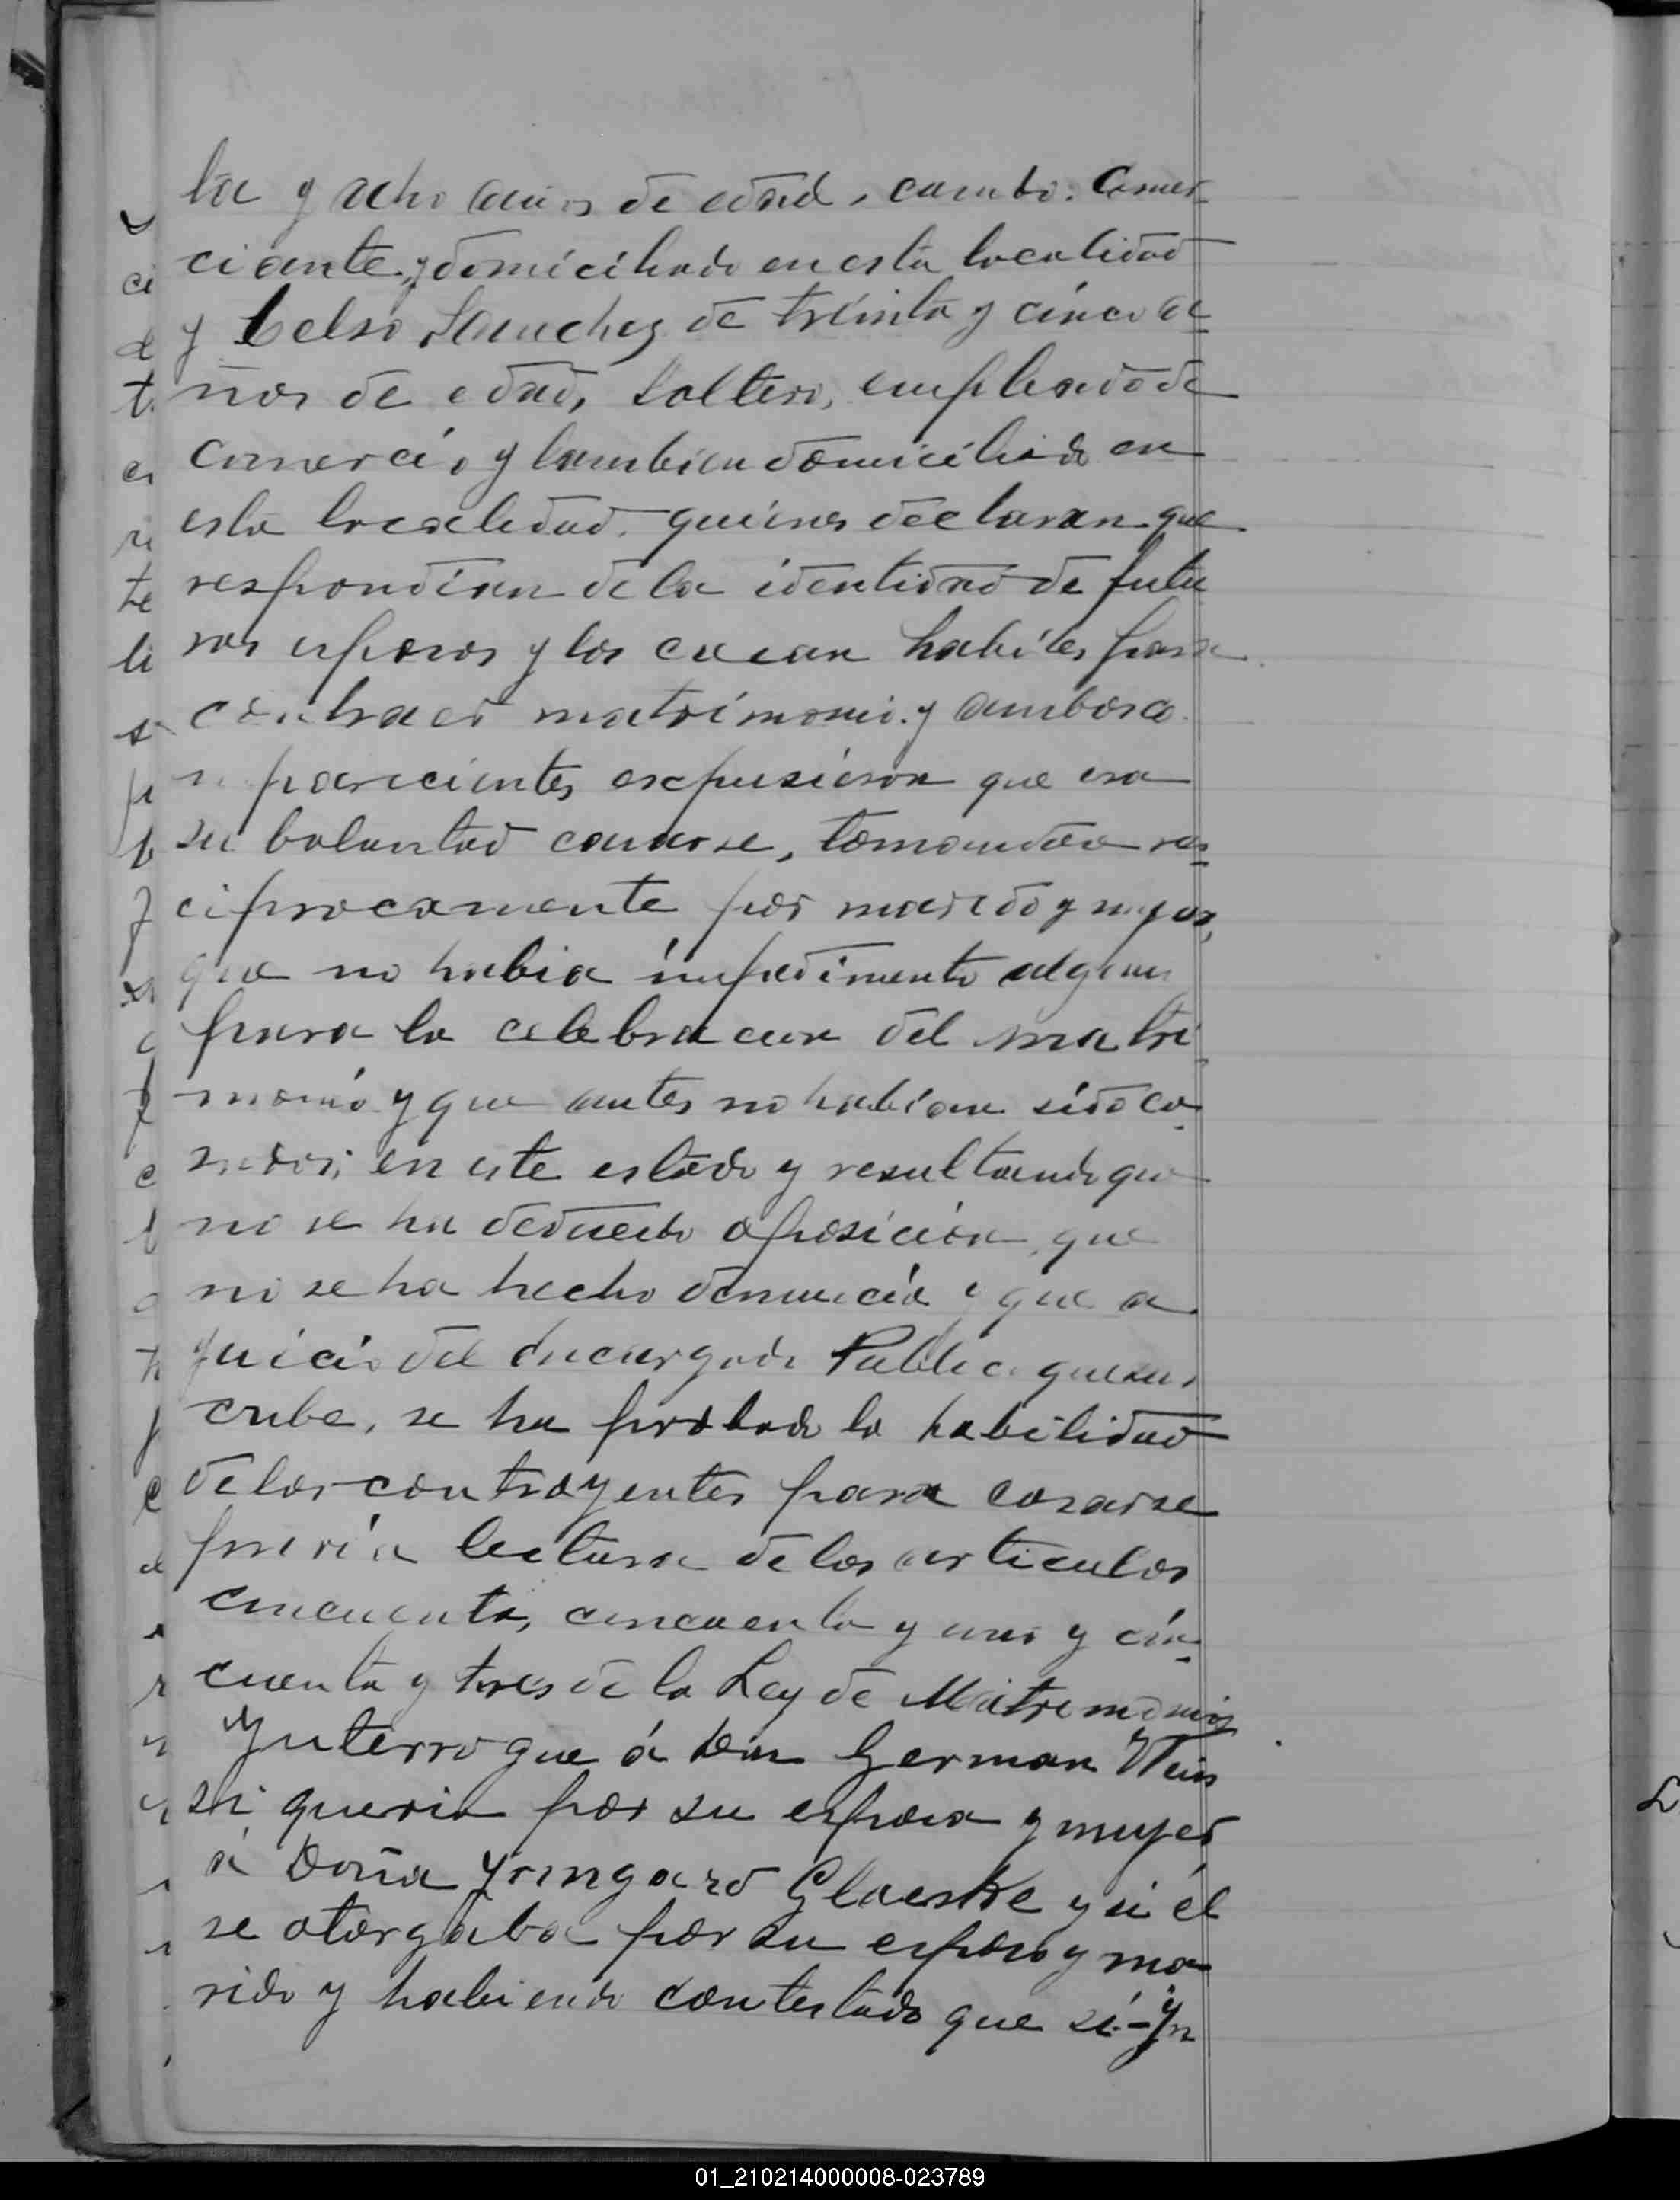 ta y ocho años de edad, casado. Comer-
ciante y domiciliado en esta localidad
y Celso Sanchez de treinta y cinco a-
ños de edad, Soltero, empleado de
comercio y tambien domiciliado en
esta localidad. quienes declaran que
respondian de la identidad de futu
ros esposos y los creian habiles para
contraer matrimonio. y ambos co
n parecientes expusieron que era
su boluntad casarse, tomandose re-
ciprocamente por marido y mujer,
que no habia impedimento alguno
para la celebracion del matri
monio y que antes no habian sido ca-
sados; en este estado y resultando que
no se ha deducido oposición, que
no se ha hecho denuncia y que a
juicio del Encargado Publico que sus
cribe, se ha probado la habilidad
de los contrayentes para casarse
previa lectura de los articulos
cincuenta, cincuenta y uno y cin-
cuenta y tres de la Ley de Matrimonios
Ynterrogue á Don German Weis
si queria por su esposa y mujer
á Doña Yrmgard Glaeske y si él
se otorgaba por su esposo y ma
rido y habiendo contestado que sí.- Yn
01_210214000008-023789